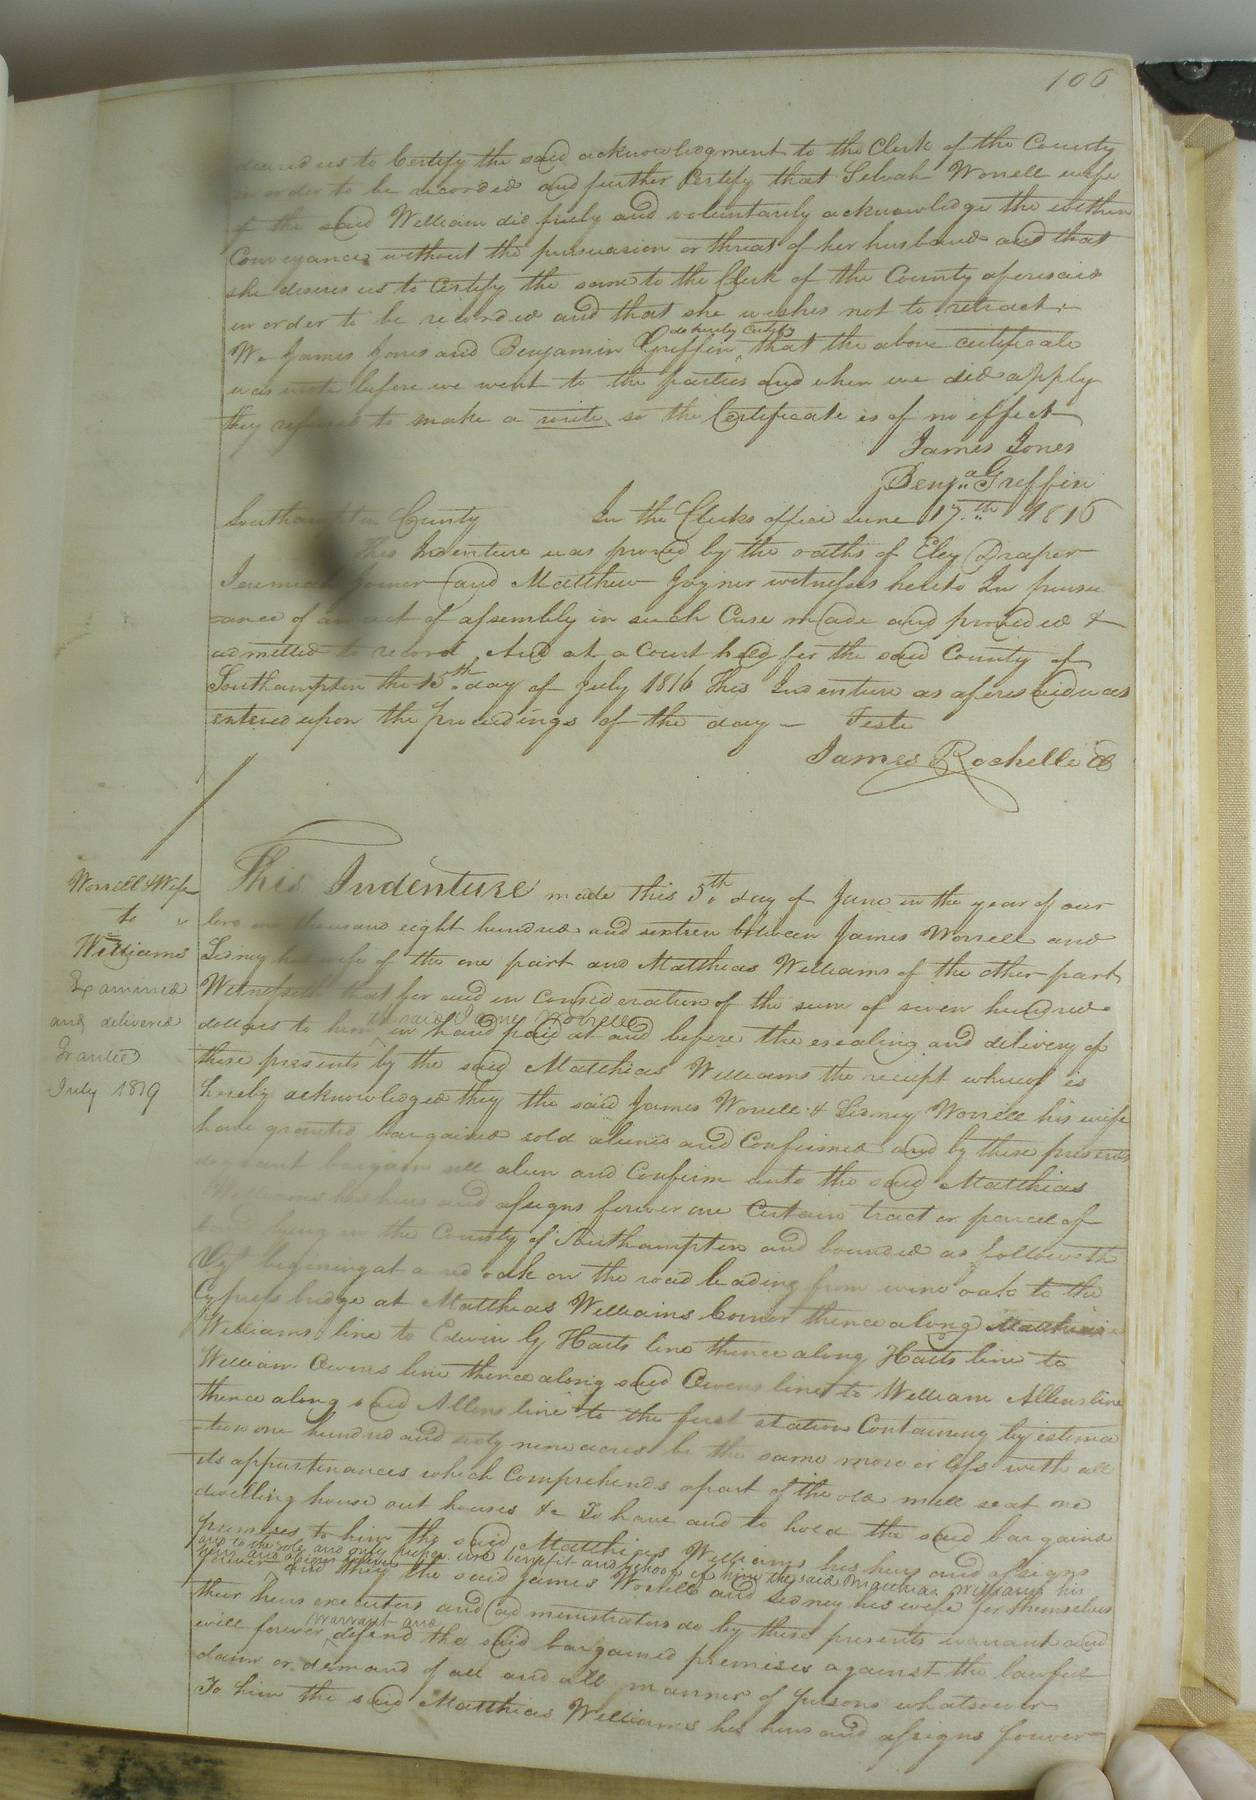 106
desired us to Certify the said acknowledgment to the Clerk of the County
in order to be recorded and further Certify that Selvah Worrell wife
of the said William did freely and voluntarily acknowledge the within
Conveyance without the persuasion or threat of her husband and that
she desires us to Certify the same to the Clerk of the County aforesaid
in order to be recorded and that she wishes not to retract
do hereby Certify
We James Jones and Benjamin Griffin ^ that the above certificate
was wrote before we went to the parties and when we did apply
they refused to make a write so the Certificate is of no effect
James Jones
Benja. Griffin
Southampton County In the Clerks office June 17th. 1816
This Indenture was proved by the oaths of Eley Draper
Jeremiah Joiner and Matthew Joyner witnesses hereto In pursu
-ance of an act of assembly in such Case made and provided &
admitted to record. And at a Court held for the said County of
Southampton the 15th day of July 1816 This Indenture as aforesaid was
entered upon the proceedings of the day - Teste
James Rochelle
Worrell & Wife
to
Williams
Examined
and delivered
Grantee
July 1819
This Indenture made this 5th. day of June in the year of our
lord one thousand eight hundred and sixteen between James Worrell and
Sidney his wife of the one part and Matthias Williams of the other part
Witnesseth that for and in Consideration of the sum of seven hundred
the said James Worrell
dollars to him ^ in hand paid at and before the ensealing and delivery of
these presents by the said Matthias Williams the receipt whereof is
hereby acknowledged they the said James Worrell & Sidney Worrell his wife
have granted bargained sold aliened and Confirmed and by these presents
do grant bargain sell alien and Confirm unto the said Matthias
Williams his heirs and assigns forever one Certain tract or parcel of
land lying in the County of Southampton and bounded as followeth
Viz begining at a red oak on the road leading from wine oak to the
Cypress bridge at Matthias Williams Corner thence along Matthias
Williams line to Edwin G Harts line thence along Harts line to
William Owens line thence along said Owens line to William Allens line
thence along said Allens line to the first station Containing by estima
-tion one hundred and sixty nine acres be the same more or less with all
its appurtenances which Comprehends apart of the old mill seat one
dwelling house out houses &c To have and to hold the said bargaind
premises to him the said Matthias Williams his heirs and assigns
and to the sole and only proper use benefit and behoof of him the said Matthias Williams his
heirs and assigns forever
^ And they the said James Worrell and Sidney his wife for themselves
their heirs executors and administrators do by these presents warrant and
warrant and
will forever ^ defend the said bargained premises against the lawful
claim or demand of all and all manner of persons whatsoever
To him the said Matthias Williams his heirs and assigns forever